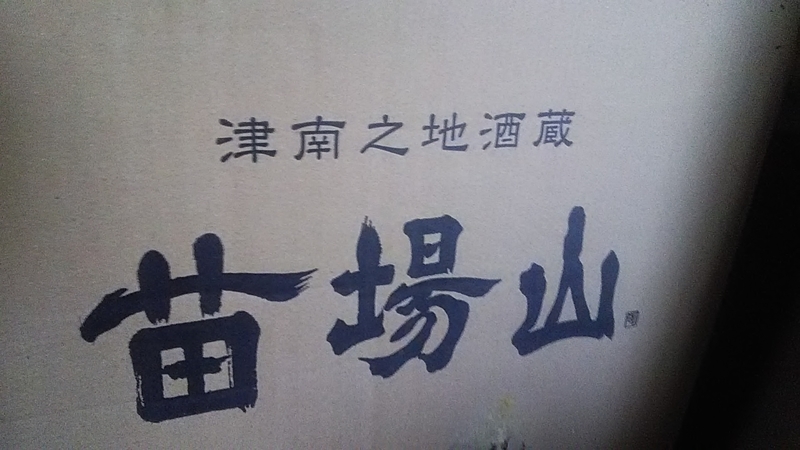 津南之地酒蔵
苗場山